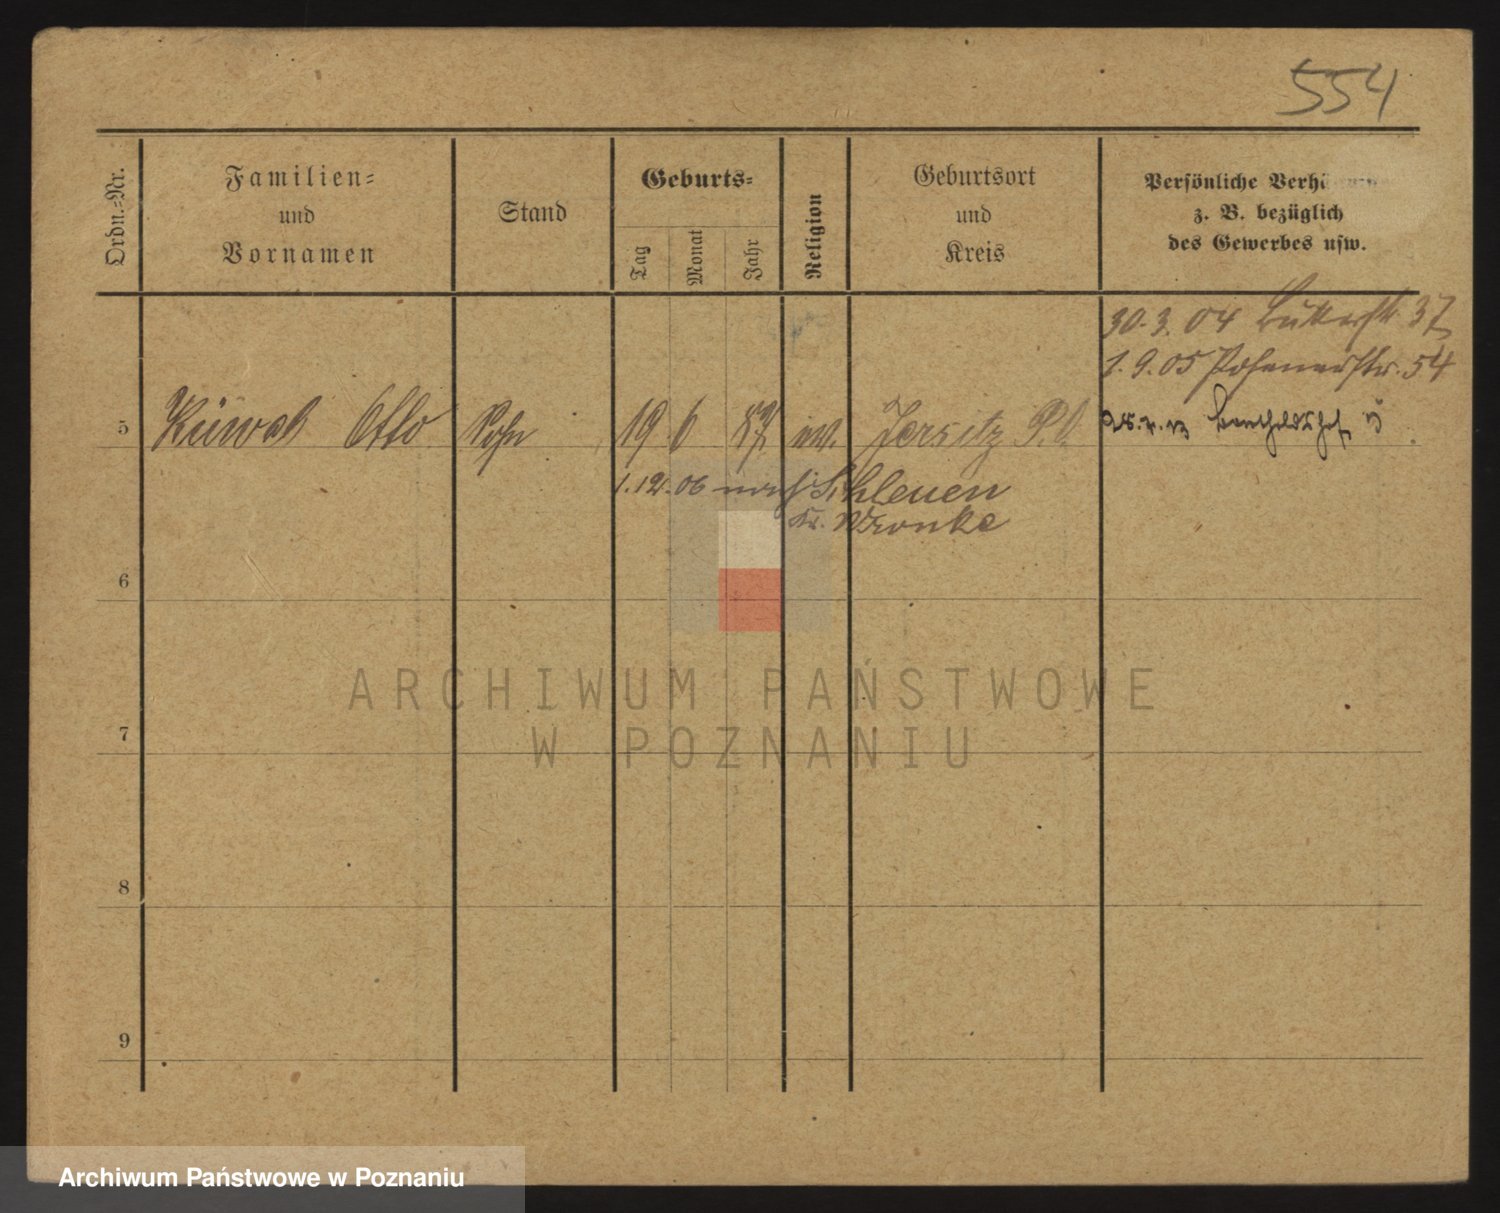 554
Ordn.-Nr.
Familien-
und
Vornamen
Stand
Geburts-
Tag
Monat
Jahr
Religion
Geburtsort
und
Kreis
Persönliche Verhä
z. B. bezüglich
des Gewerbes usw.
30.3.04 37
1.9.05 Posenerstr. 54
5 Otto Sohn 19 6 87 ev. Jersitz P. O.
1.12.06 nach Schleuen
Kr. Wronke
6
7
8
9
ARCHIWUM PAŃSTWOWE
W POZNANIU
Archiwum Państwowe w Poznaniu